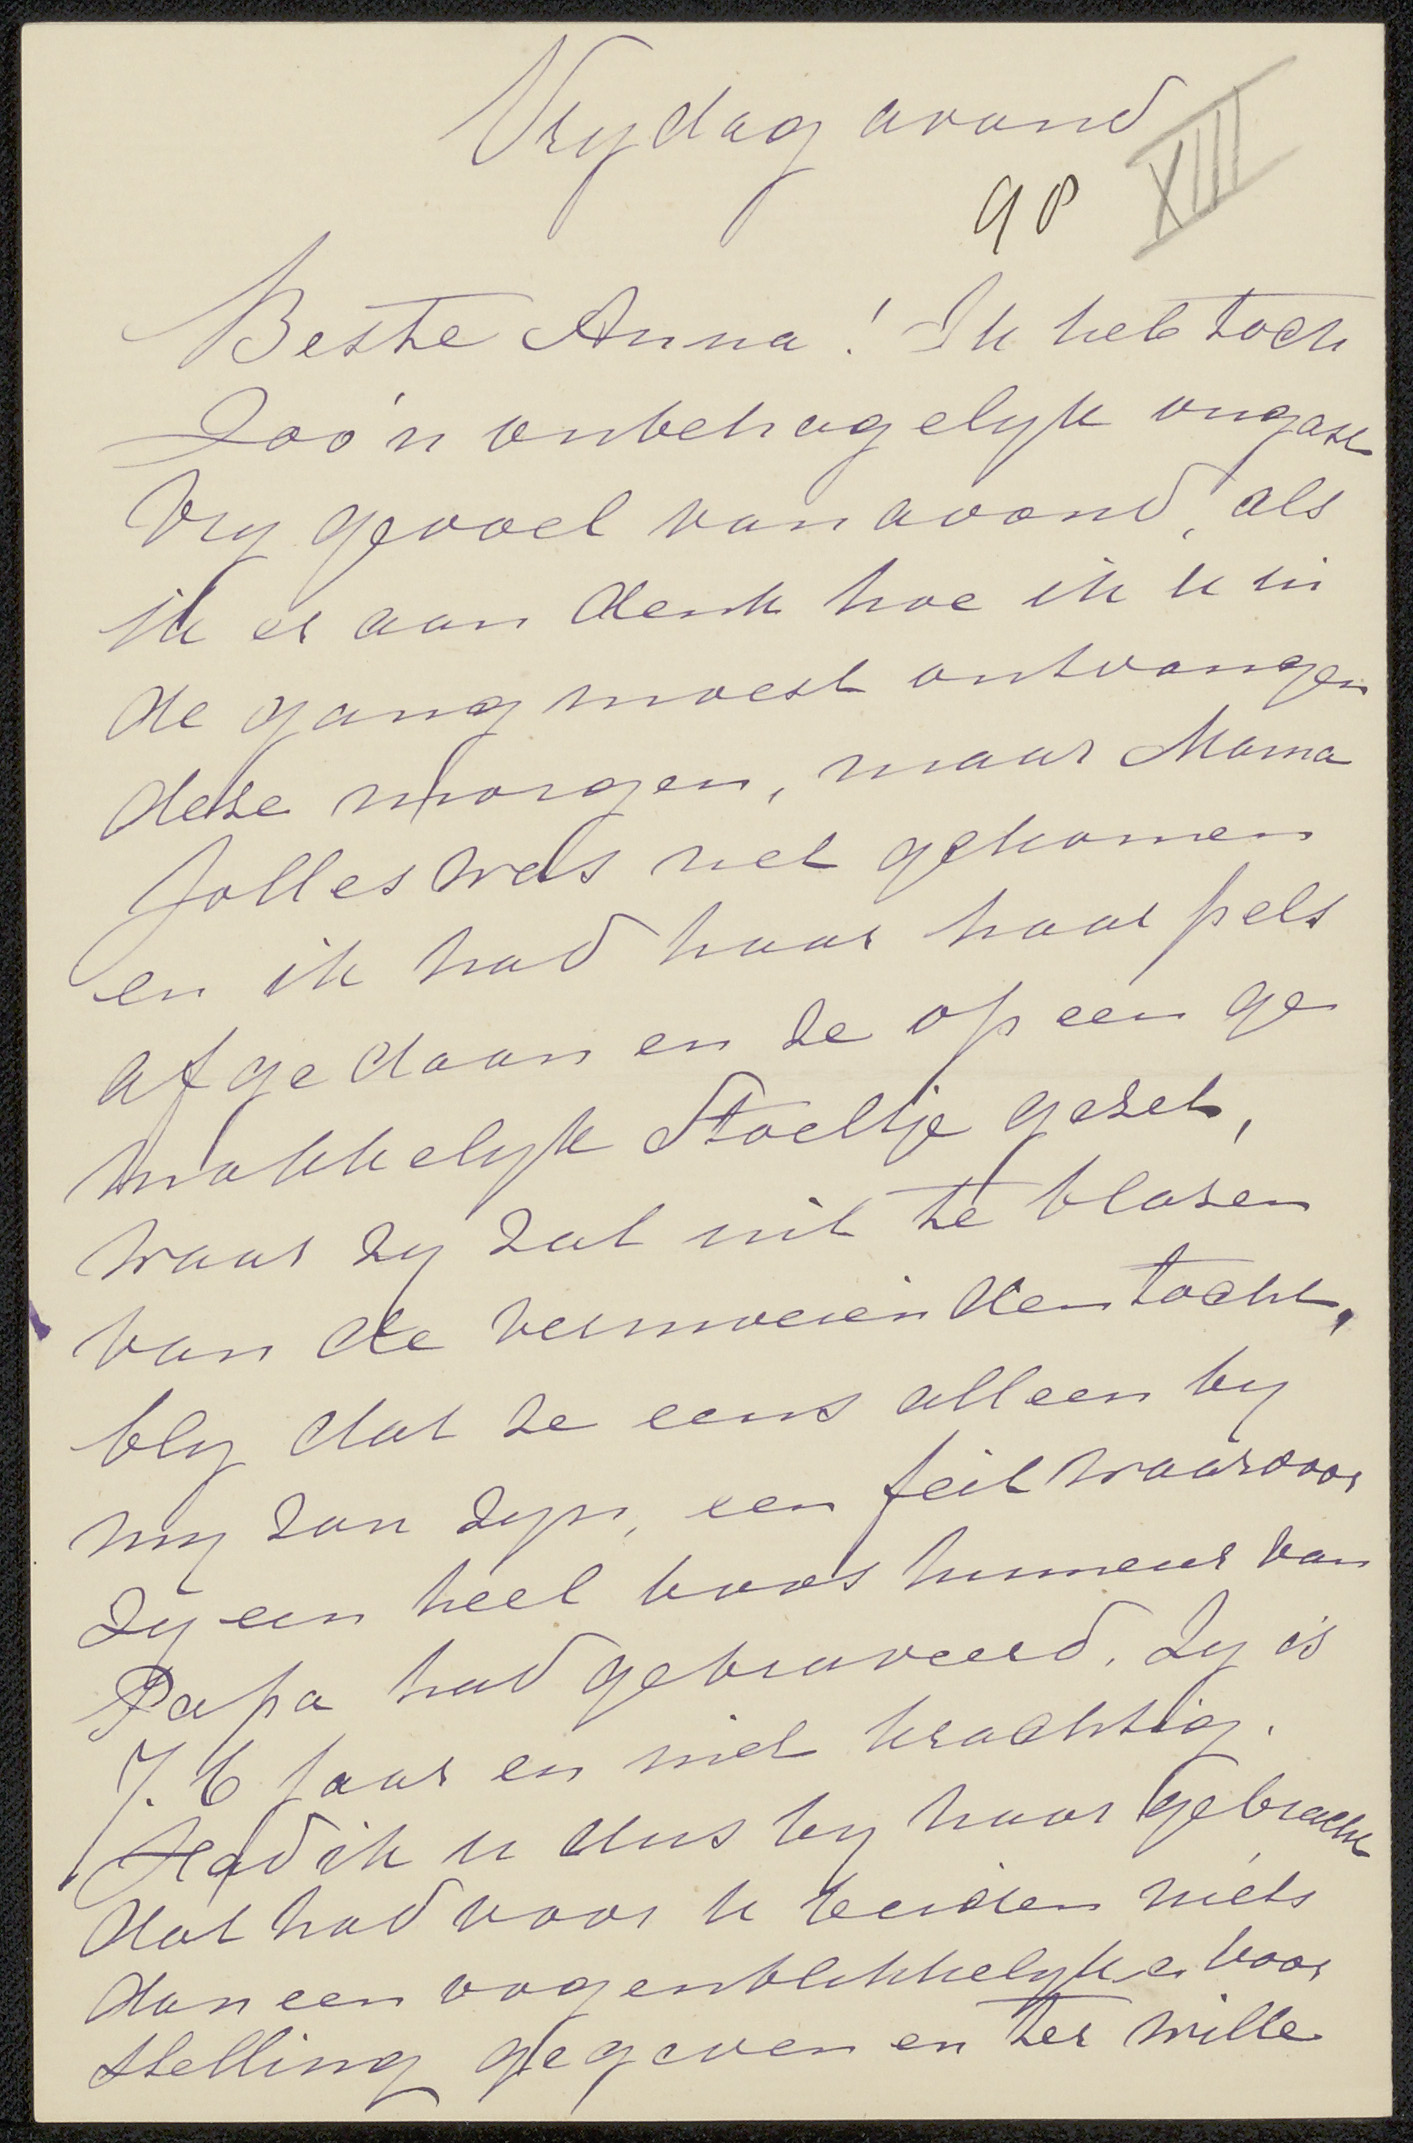 Vrydag avond
98 XIII
Beste Anna! Ik heb toch
Zoo'n onbehagelyk ongast
vry gevoel van avond, als
ik er aan denk hoe ik u in
de gang moest ontvangen
deze morgen, maar Mama
Jolles was net gekomen
en ik had haar haar pels
afgedaan en ze op een ge
makkelyk Stoeltje gezet,
waar zy zat uit te blazen
van de vermoeienden tocht,
bly dat ze eens alleen by
my zou zyn, een feit waarvoor
zy een heel boos humeur van
Papa had gebraveerd. Zy is
76 jaar en niet krachtig.
Had ik u dus by haar gebracht
dat had voor u beiden niets
dan een oogenblikkelyke voor
stelling gegeven en ter wille